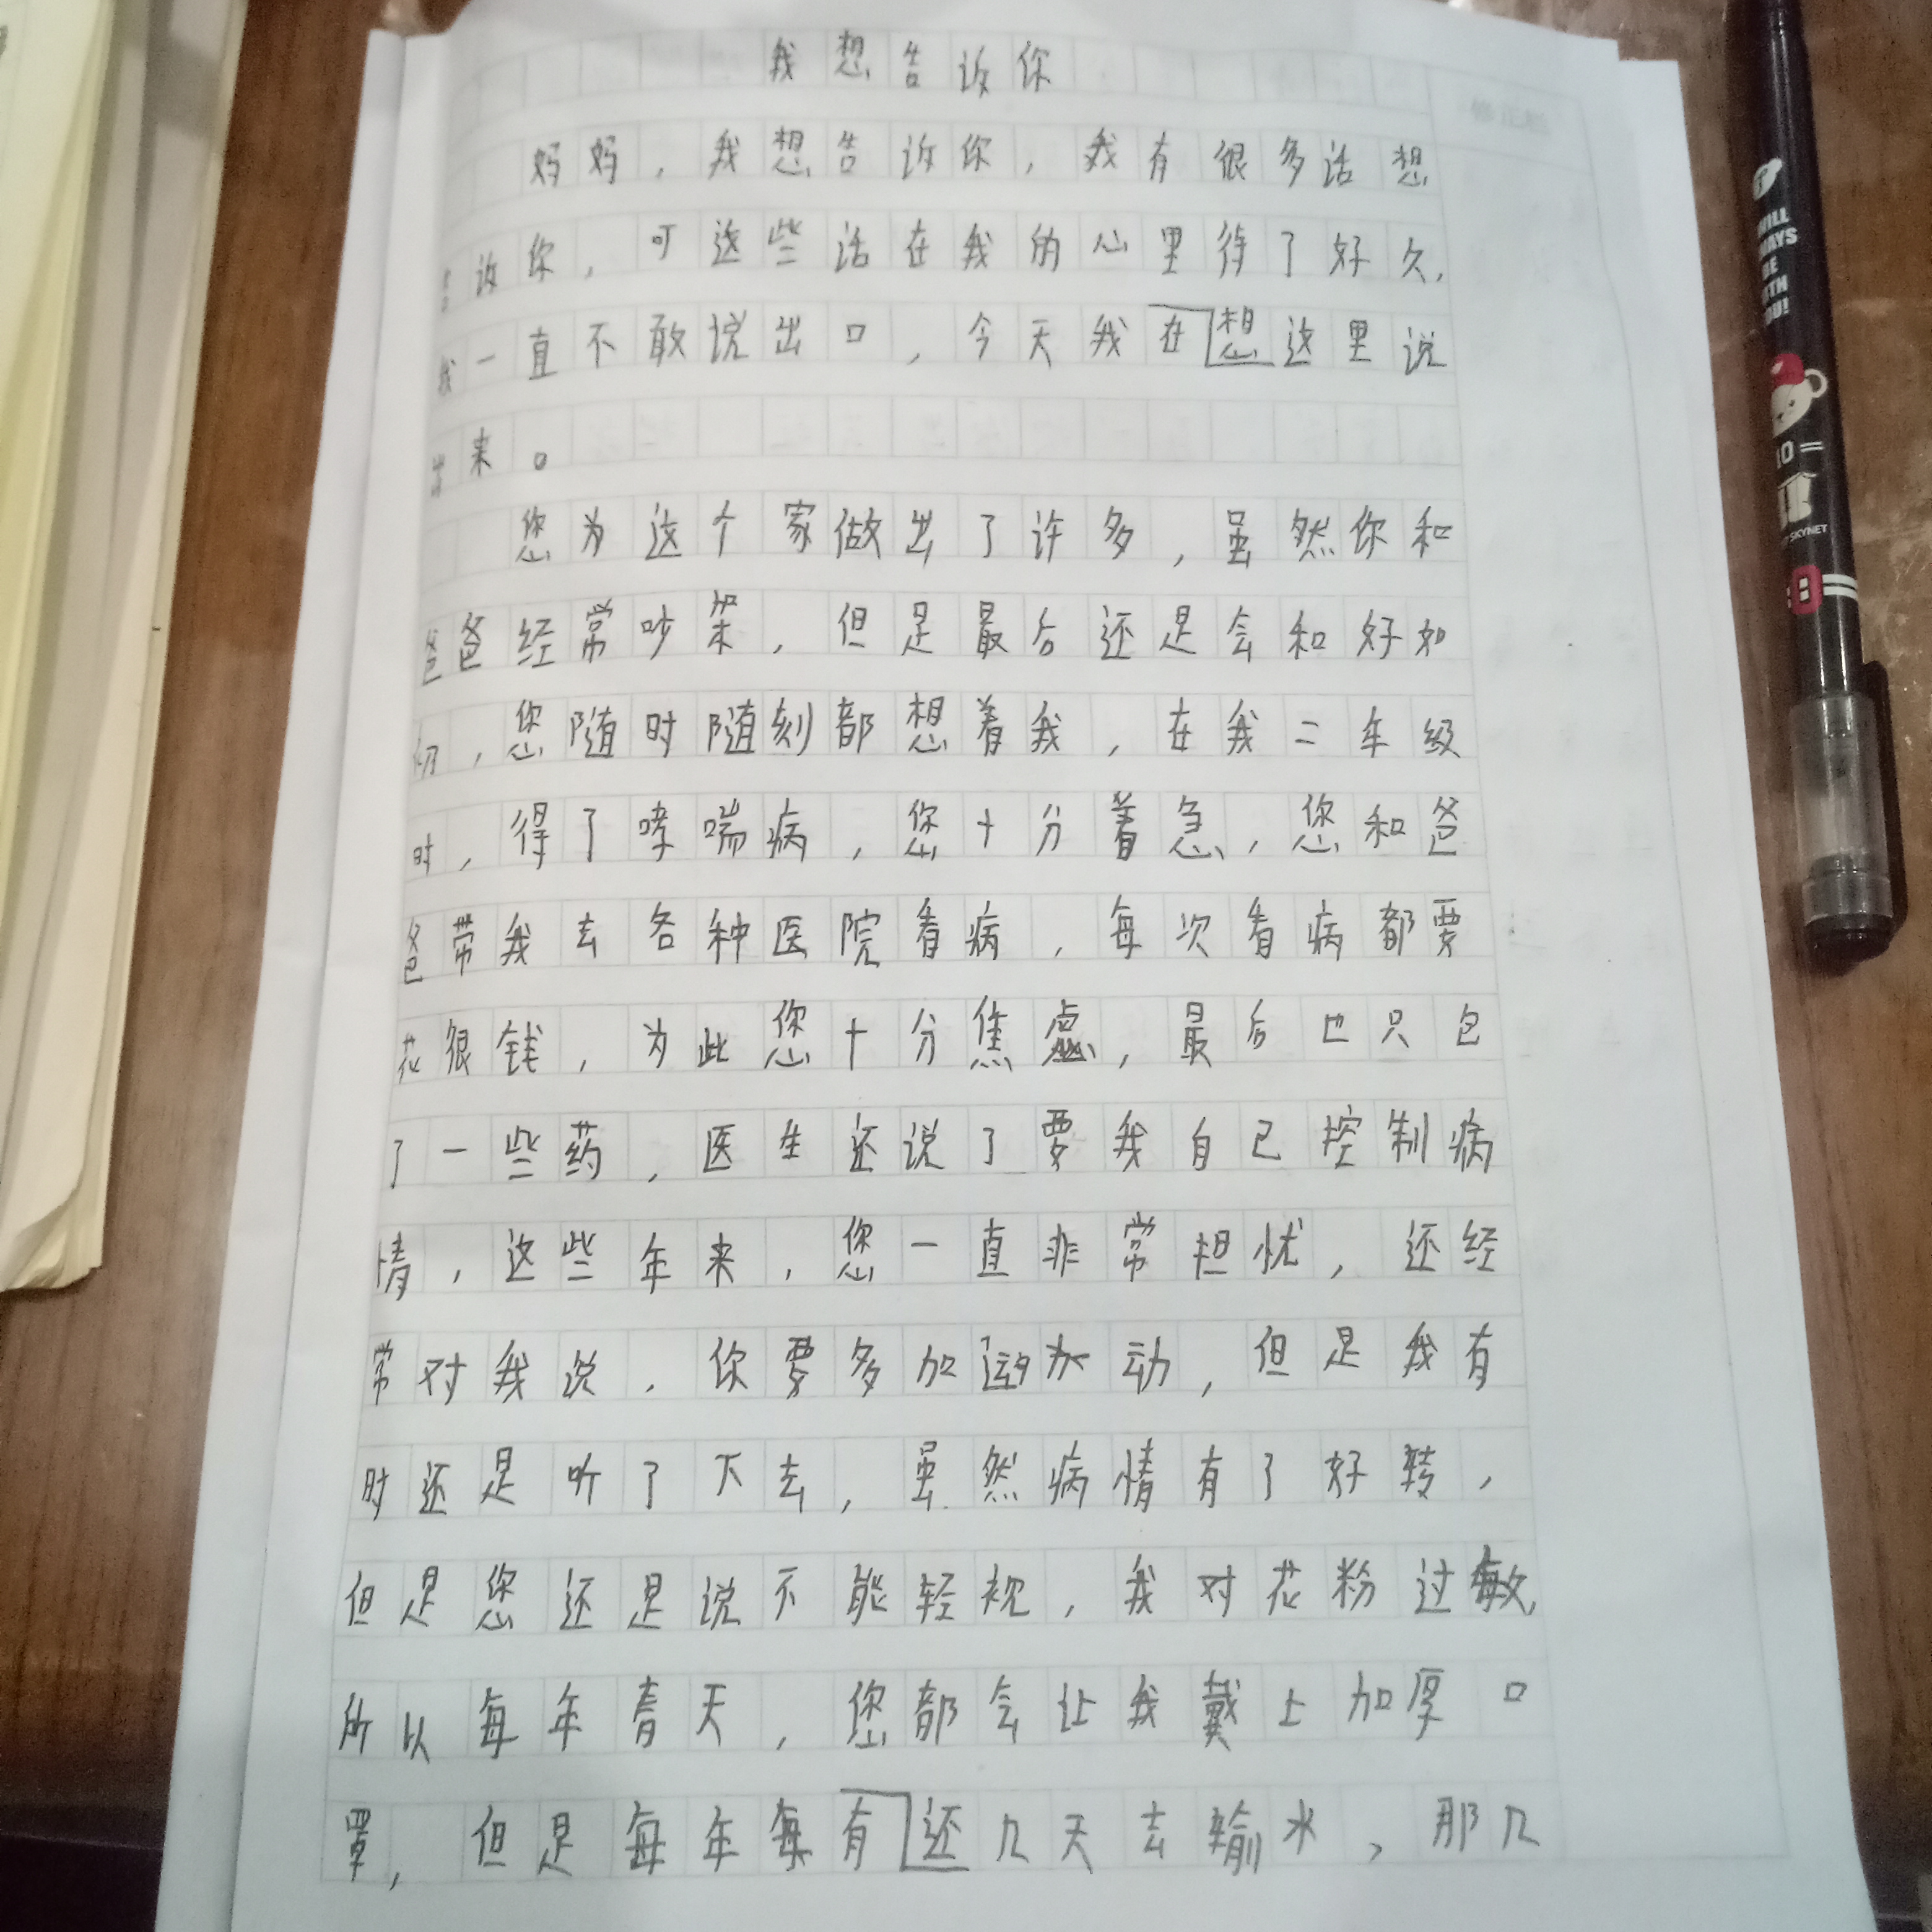 我想告诉你
修正栏
妈妈，我想告诉你，我有很多话想
告诉你，可这些话在我的心里待了好久，
我一直不敢说出口，今天我在想这里说
出来。
您为这个家做出了许多，虽然你和
爸爸经常吵架，但是最后还是会和好如
初，您随时随刻都想着我，在我二年级
时，得了哮喘病，您十分着急，您和爸
爸带我去各种医院看病，每次看病都要
花很钱，为此您十分焦虑，最后也只包
了一些药，医生还说了要我自己控制病
情，这些年来，您一直非常担忧，还经
常对我说，你要多加运动，但是我有
时还是听了下去，虽然病情有了好转，
但是您还是说不能轻视，我对花粉过敏，
所以每年春天，您都会让我戴上加厚口
罩，但是每年每有还几天去输水，那几
WILL
SKYNET